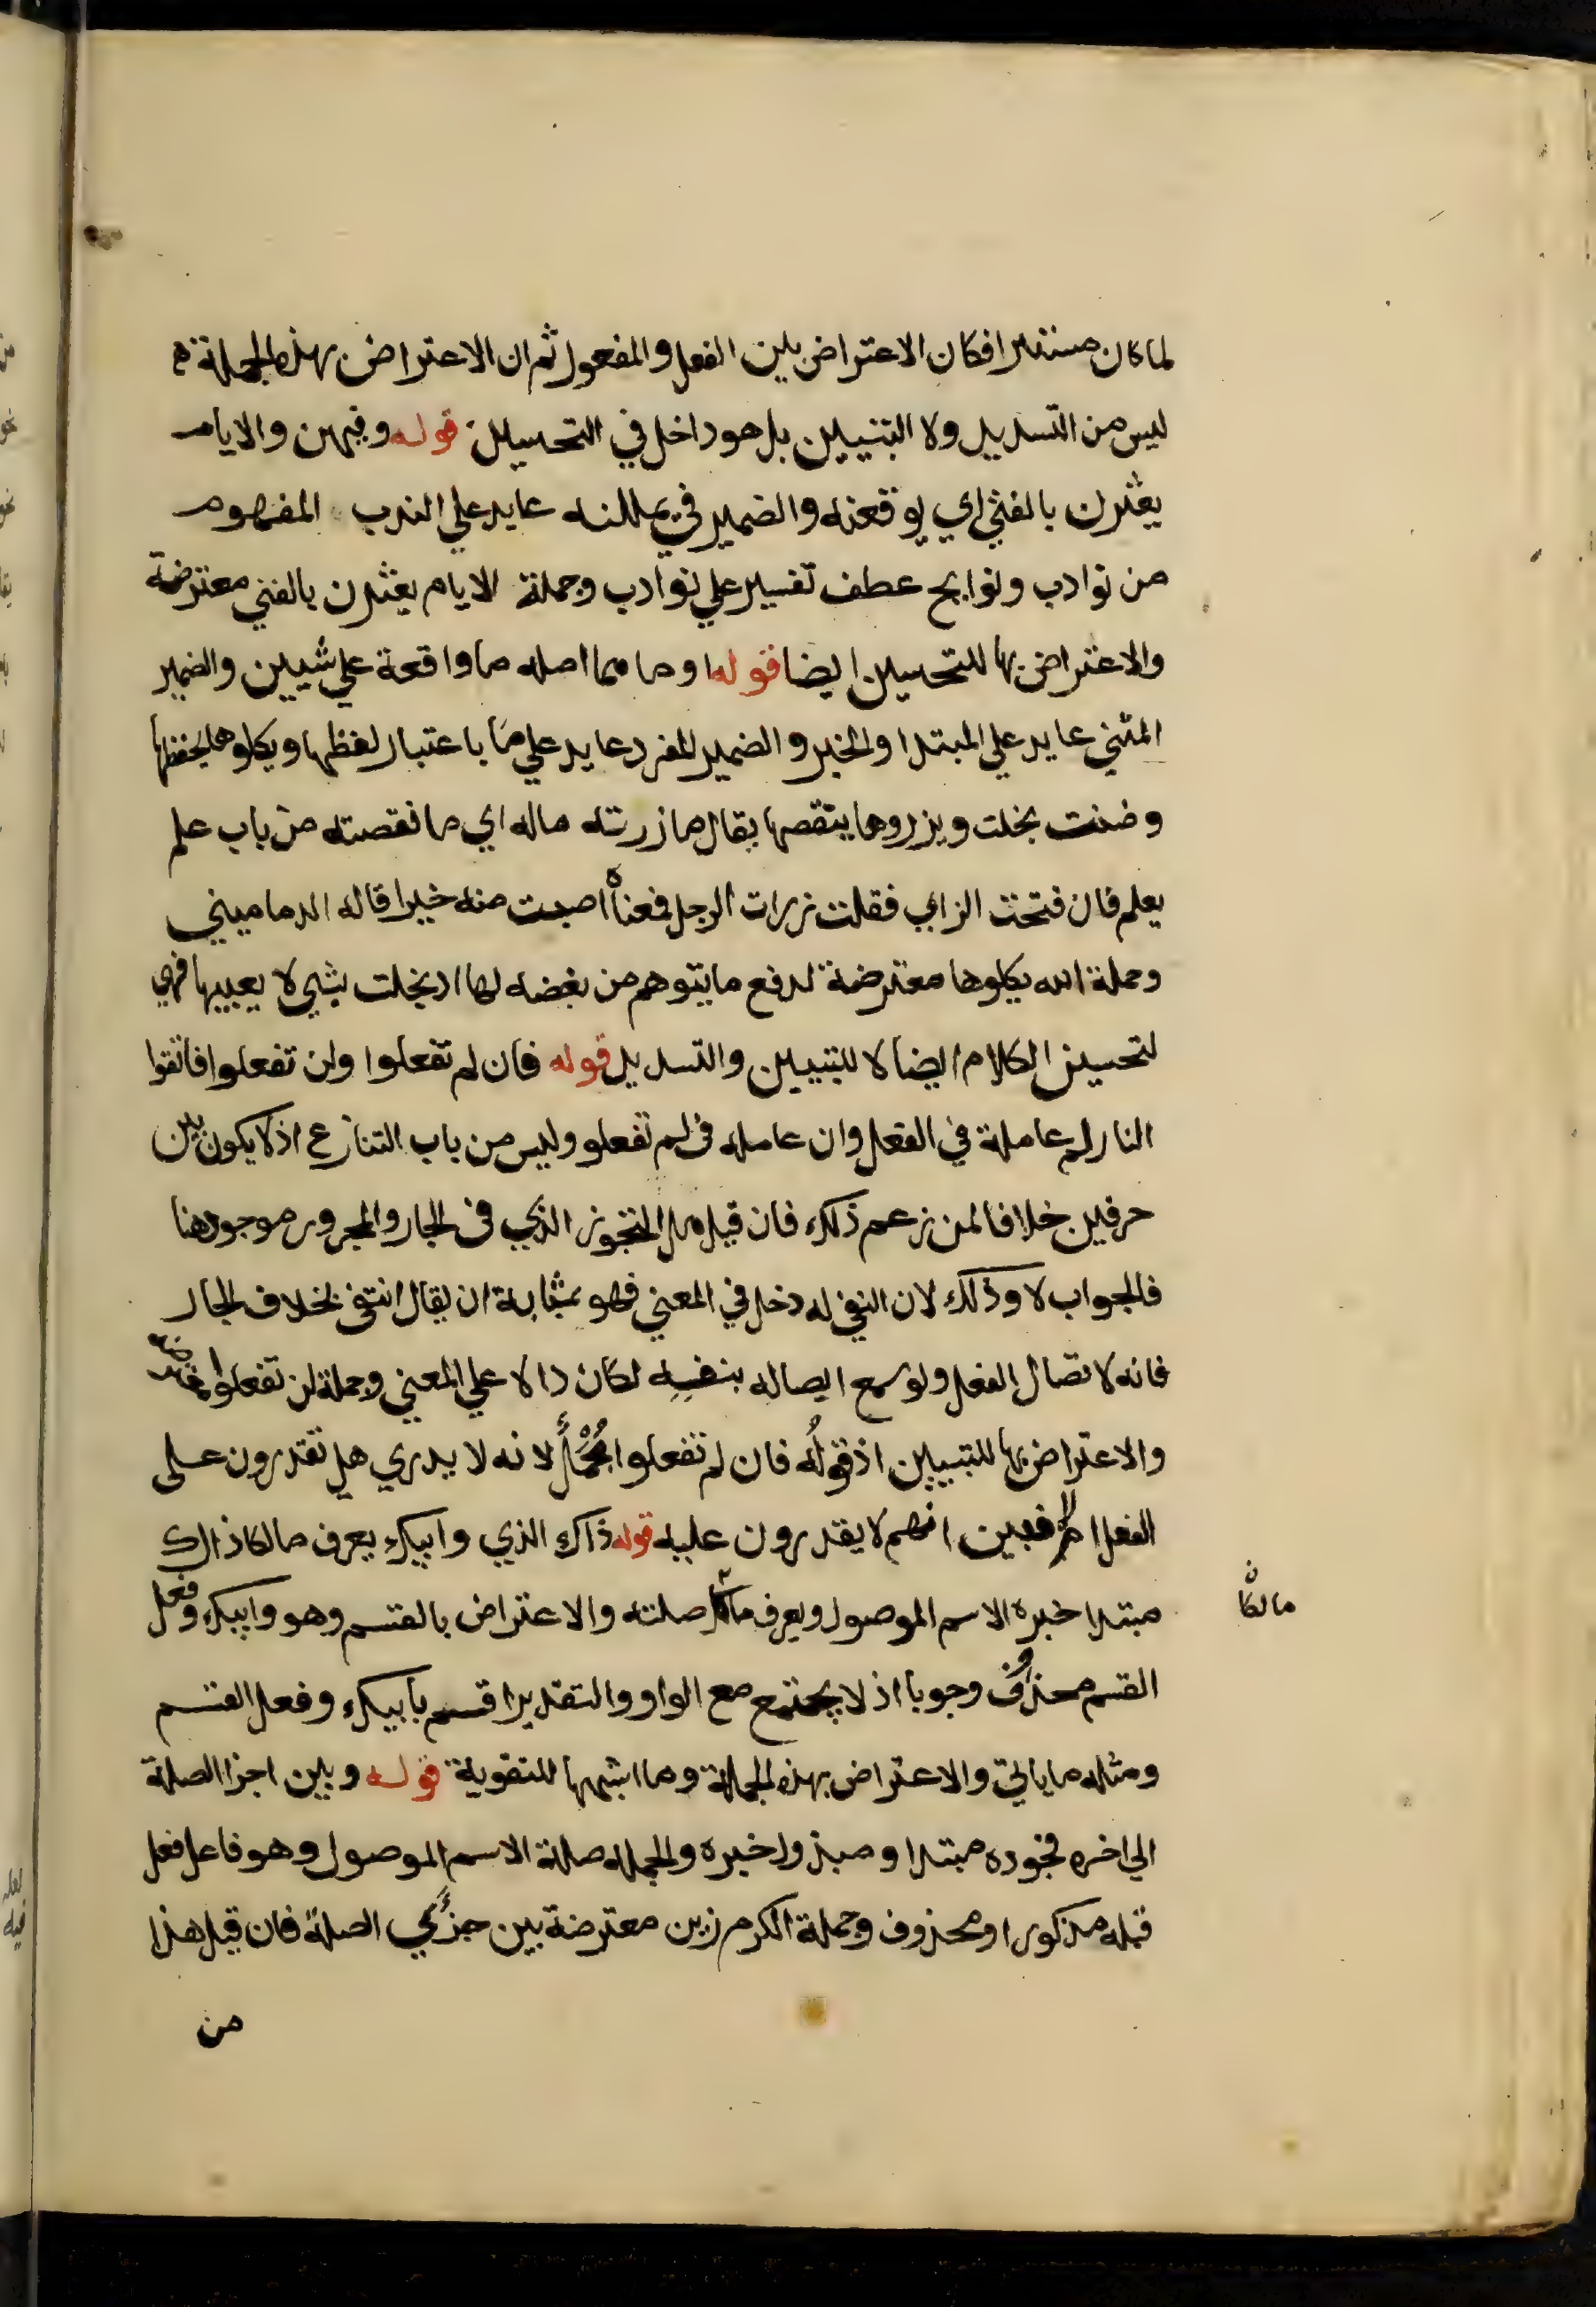 لما كان مستترا فكان الاعتراض بين الفعل والمفعول ثم ان الاعتراض بهذه الجملة
ليس من التسديد ولا التبيين بل هو داخل في التحسين قوله وفيهن والايام
يعثرن بالفتي اي يوقعنه والضمير في يمللنه عايد علي الندب المفهوم
من نوادب ونوايح عطف تفسير علي نوادب وجملة الايام يعثرن بالفتي معترضة
والاعتراض بها للتحسين ايضا قوله وما مما اصله ما واقعة علي شيين والضمير
المثني عايد علي المبتدا والخبر والضمير المفرد عايد علي ما باعتبار لفظها ويكلوها يحفظها
وضنت بخلت ويزروها ينقصها يقال ما زرته ماله اي ما نقصته من باب علم
يعلم فان فتحت الزاي فقلت زرات الرجل فمعناه اصبت منه خيرا قاله الدماميني
وجملة الله يكلوها معترضة لدفع ما يتوهم من بغضه لها اذ بخلت بشي لا يعيبها فهي
لتحسين الكلام ايضا لا للتبيين والتسديد قوله فان لم تفعلوا ولن تفعلوا فاتقوا
النار لم عاملة في الفعل وان عامله في لم تفعلو وليس من باب التنازع اذ لا يكون بين
حرفين خلافا لمن زعم ذلك فان قيل هل التجوز الذي في الجار والمجرور موجود هنا
فالجواب لا وذلك لان النفي له دخل في المعني فهو بمثابة ان يقال انتفي بخلاف الجار
فانه لاتصال الفعل ولو سمع ايصاله بنفسه لكان دالا علي المعني وجملة لن تفعلوا معترضة
والاعتراض بها للتبيين اذ قوله فان لم تفعلوا مجمل لانه لا يدري هل تقدرون علي
الفعل ام لا فبين انهم لا يقدرون عليه قوله ذاك الذي وابيك يعرف مالكا ذاك
مبتدا خبره الاسم الموصول ويعرف مالكا صلته والاعتراض بالقسم وهو وابيك وفعل
مالكا
القسم محذوف وجوبا اذ لا يجتمع مع الواو والتقدير اقسم بابيك وفعل القسم
ومثله ما ياتي والاعتراض بهذه الجملة وما اشبهها للتقوية قوله وبين اجزا الصلة
الي اخره فجوده مبتدا ومبذول خبره والجمله صلة الاسم الموصول وهو فاعل فعل
قبله مذكور او محذوف وجملة الكرم زين معترضة بين جزئي الصلة فان قيل هذا
من